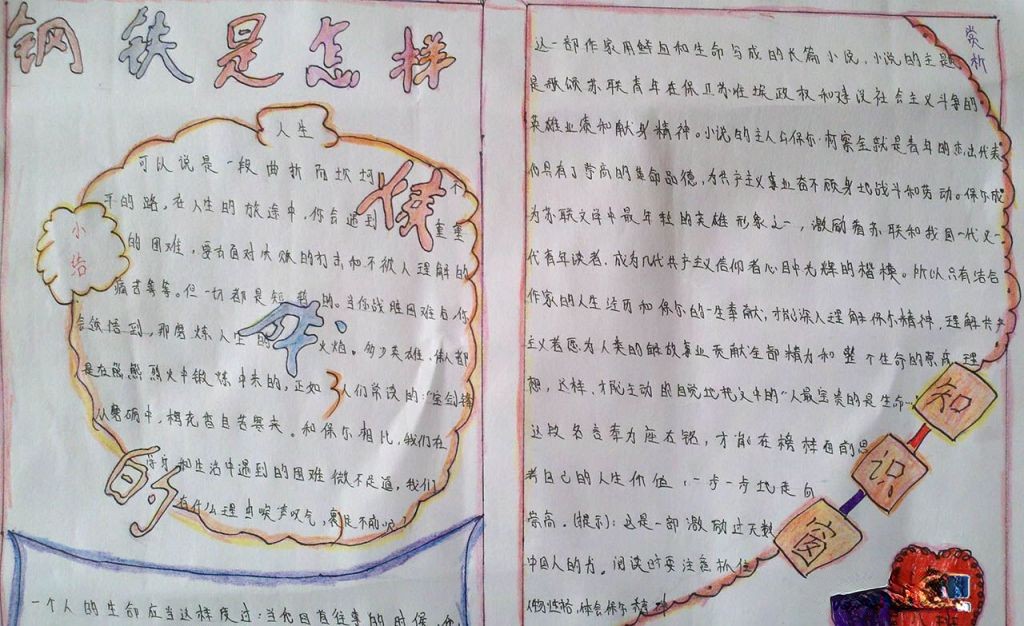 钢铁是怎样
炼
成
的
人生
小结
可以说是一段曲折而坎坷不
平的路，在人生的旅途中，你会遇到重重
的困难，要面对失败的打击和不被人理解的
痛苦等等。但一切都是短暂的。当你战胜困难后，你
会领悟到，那磨炼人生的火焰。多少英雄、伟人都
是在熊熊烈火中锻炼中来的，正如人们常谈的：“宝剑锋
从磨砺中，梅花香自苦寒来。和保尔相比，我们在
学习和生活中遇到的困难微不足道，我们
有什么理由唉声叹气，裹足不前呢？
一个人的生命应当这样度过：当他回首往事的时候，他
赏析
这一部作家用鲜血和生命写成的长篇小说，小说的主题
是歌颂苏联青年在保卫苏维埃政权和建设社会主义斗争的
英雄业绩和献身精神。小说的主人公保尔·柯察金就是青年的杰出代表
他具有了崇高的革命品德，为共产主义事业奋不顾身地战斗和劳动。保尔成
为苏联文学中最年轻的英雄形象之一，激励着苏联和我国一代又一
代青年读者，成为几代共产主义信仰者心目中光辉的楷模。所以只有结合
作家的人生经历和保尔的一生奉献，才能深入理解保尔精神，理解共产
主义者愿为人类的解放事业贡献全部精力和整个生命的崇高理
想，这样，才能主动的自觉地把文中的“人最宝贵的是生命…”
这段名言奉为座右铭，才能在榜样面前思
考自己的人生价值，一步一步地走向
崇高。（提示）：这是一部激励过无数
中国人的书。阅读时要注意抓住
人物性格，体会保尔精神
知
识
窗